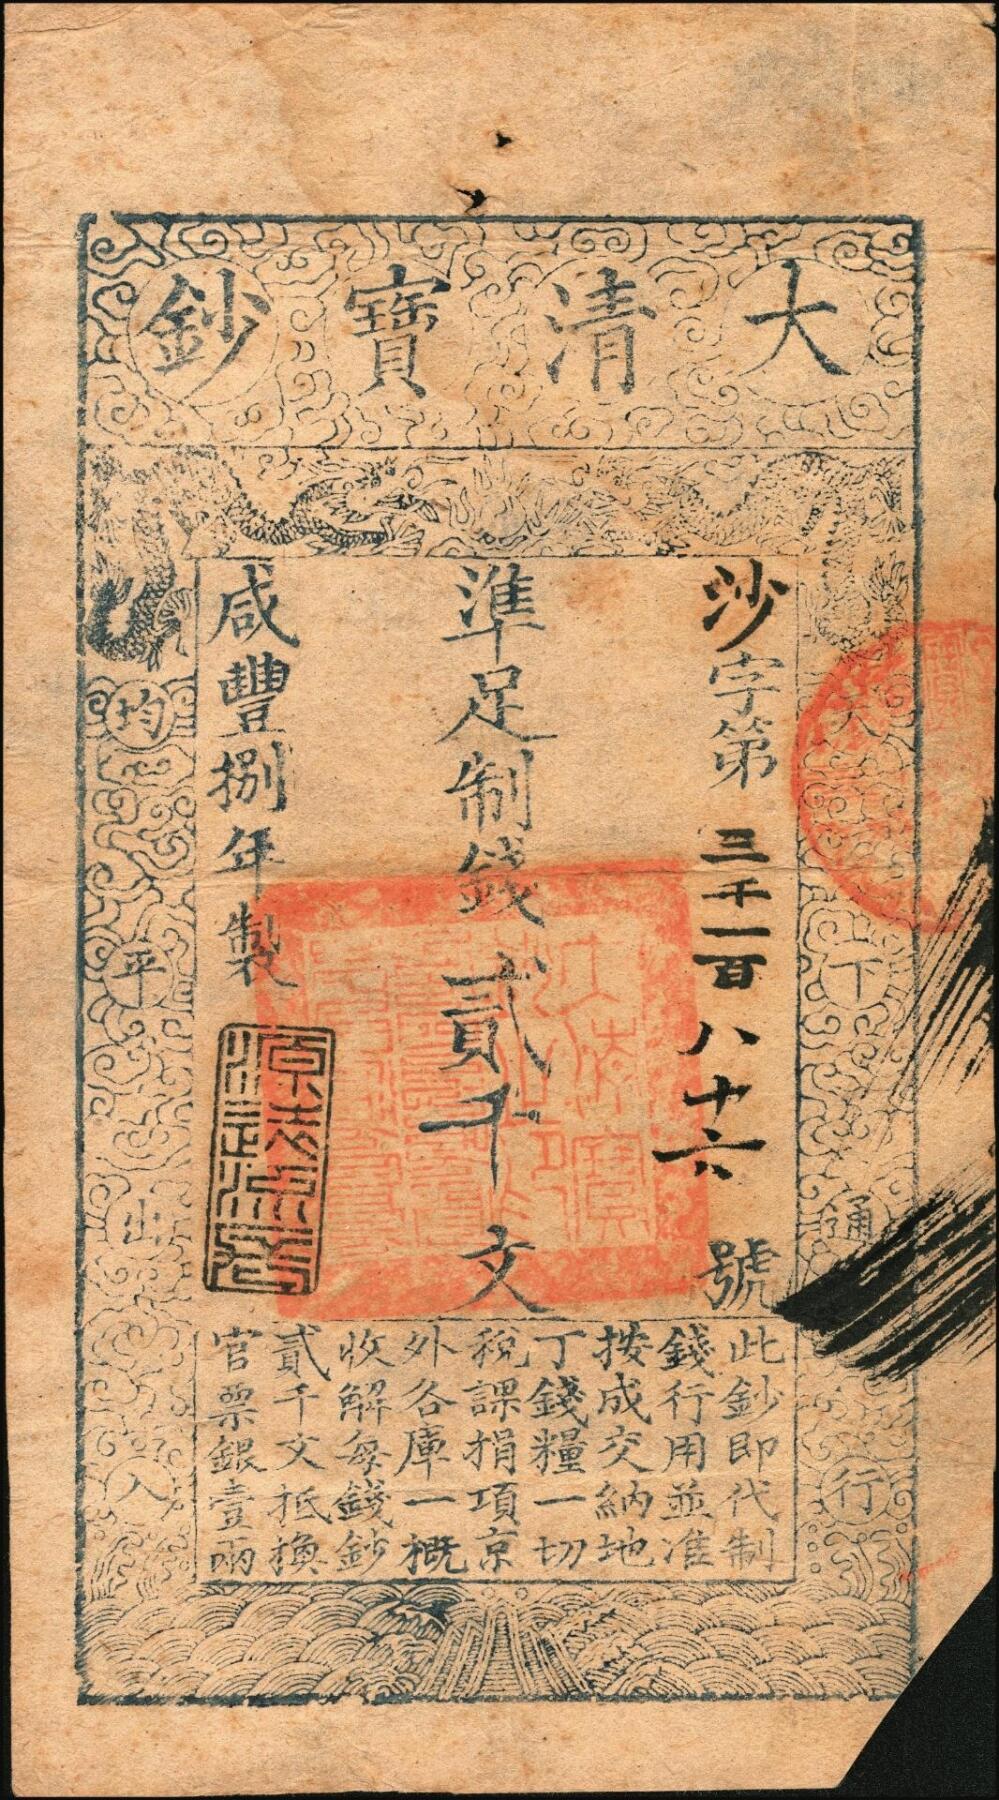 大清寶鈔
天下通行
沙字第三千一百八十六號
準足制錢貳千文
咸豐捌年製
均平出入
此鈔即代制
錢行用並准
按成交納地
丁錢糧一切
稅課捐項京
外各庫一概
收解每錢鈔
貳千文抵換
官票銀壹兩